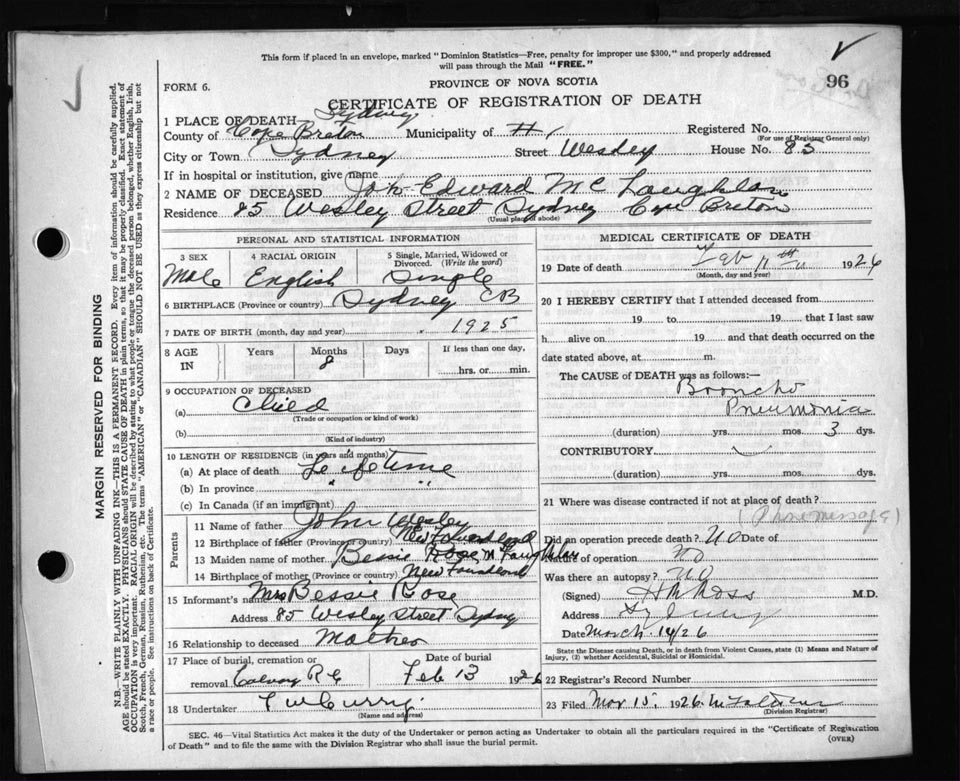 This form if placed in an envelope, marked "Dominion Statistics—Free, penalty for improper use $300," and properly addressed
will pass through the Mail "FREE."
PROVINCE OF NOVA SCOTIA
96
FORM 6.
CERTIFICATE OF REGISTRATION OF DEATH
1 PLACE OF DEATH Sydney
County of Cape Breton Municipality of Registered No.
(For use of Registrar General only)
City or Town Sydney Street Wesley House No. 85
If in hospital or institution, give name
2 NAME OF DECEASED John Edward Mc Laughlan
Residence 85 Wesley Street Sydney Cape Breton
(Usual place of abode)
PERSONAL AND STATISTICAL INFORMATION
3 SEX 4 RACIAL ORIGIN 5 Single, Married, Widowed or
Divorced. (Write the word)
Male English Single
6 BIRTHPLACE (Province or country) Sydney CB
7 DATE OF BIRTH (month, day and year) 1925
8 AGE IN Years Months Days If less than one day,
8 hrs. or min.
9 OCCUPATION OF DECEASED
(a) Child
(Trade or occupation or kind of work)
(b)
(Kind of industry)
10 LENGTH OF RESIDENCE (in years and months)
(a) At place of death Lifetime
(b) In province " "
(c) In Canada (if an immigrant)
Parents
11 Name of father John Wesley
12 Birthplace of father (Province or country) New Foundland
13 Maiden name of mother Bessie Rose McLaughlan
14 Birthplace of mother (Province or country) New Foundland
15 Informant's name Mrs Bessie Rose
Address 85 Wesley Street Sydney
16 Relationship to deceased Mother
17 Place of burial, cremation or Date of burial
removal Calvary R C Feb 13 1926
18 Undertaker T W Curry
(Name and address)
MEDICAL CERTIFICATE OF DEATH
19 Date of death Feb 11th 1926
(Month, day and year)
20 I HEREBY CERTIFY that I attended deceased from
19 to 19 that I last saw
h alive on 19 and that death occurred on the
date stated above, at m.
The CAUSE of DEATH was as follows:—
Broncho
Pneumonia
(duration) yrs. mos. 3 dys.
CONTRIBUTORY
(duration) yrs. mos. dys.
21 Where was disease contracted if not at place of death?
Did an operation precede death? No Date of
Nature of operation No
Was there an autopsy? No
(Signed) H M Ross M.D.
Address Sydney
Date March 14/26
State the Disease causing Death, or in death from Violent Causes, state (1) Means and Nature of
Injury, (2) whether Accidental, Suicidal or Homicidal.
22 Registrar's Record Number
23 Filed Mar 15, 1926
(Division Registrar)
SEC. 46—Vital Statistics Act makes it the duty of the Undertaker or person acting as Undertaker to obtain all the particulars required in the "Certificate of Registration
of Death" and to file the same with the Division Registrar who shall issue the burial permit.
(OVER)
MARGIN RESERVED FOR BINDING
N.B.—WRITE PLAINLY WITH UNFADING INK—THIS IS A PERMANENT RECORD. Every item of information should be carefully supplied.
AGE should be stated EXACTLY. PHYSICIANS should STATE CAUSE OF DEATH in plain terms, so that it may be properly classified. Exact statement of
OCCUPATION is very important. RACIAL ORIGIN will be described by stating to what people or tongue the deceased person belonged, whether English, Irish,
Scotch, French, German, Russian, Ruthenian, etc. The terms "AMERICAN" or "CANADIAN" SHOULD NOT BE USED as they express citizenship but not
a race or people. See instructions on back of Certificate.